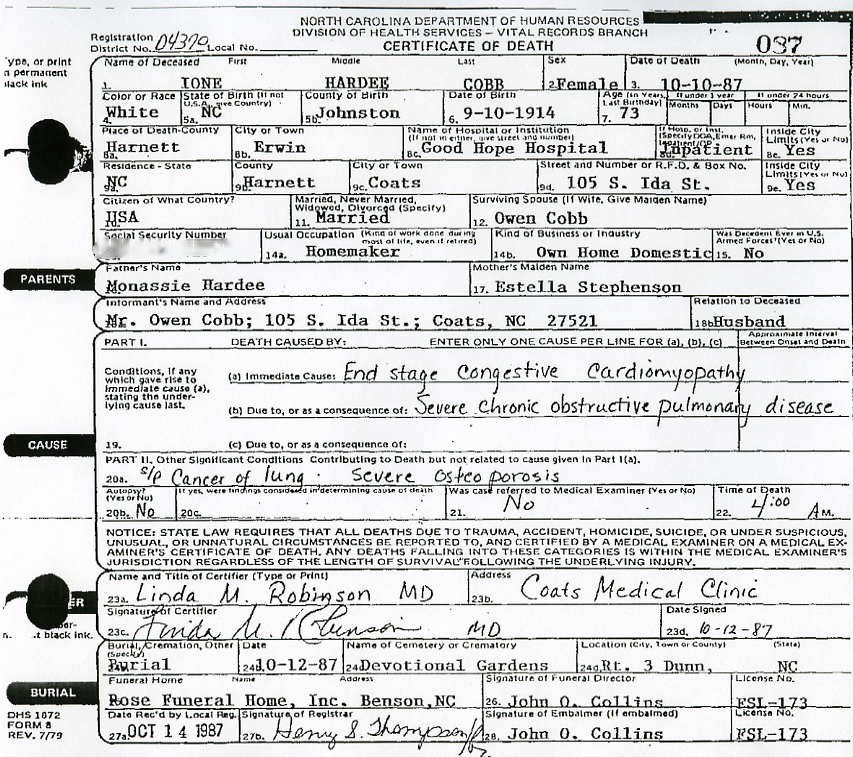 NORTH CAROLINA DEPARTMENT OF HUMAN RESOURCES
DIVISION OF HEALTH SERVICES – VITAL RECORDS BRANCH
CERTIFICATE OF DEATH
Registration District No. 04370 Local No.
087
Type, or print
in permanent
black ink
Name of Deceased First Middle Last Sex Date of Death (Month, Day, Year)
1. IONE HARDEE COBB 2. Female 3. 10-10-87
Color or Race State of Birth (If not U.S.A. give Country) County of Birth Date of Birth Age (In Years, Last Birthday) If under 1 year Months Days If under 24 hours Hours Min.
4. White 5a. NC 5b. Johnston 6. 9-10-1914 7. 73
Place of Death-County City or Town Name of Hospital or Institution (If not in either, give street and number) If Hosp. or Inst. (Specify DOA, Emer Rm, Inpatient/OP Inside City Limits (Yes or No)
8a. Harnett 8b. Erwin 8c. Good Hope Hospital 8d. Inpatient 8e. Yes
Residence - State County City or Town Street and Number or R.F.D. & Box No. Inside City Limits (Yes or No)
9a. NC 9b. Harnett 9c. Coats 9d. 105 S. Ida St. 9e. Yes
Citizen of What Country? Married, Never Married, Widowed, Divorced (Specify) Surviving Spouse (If Wife, Give Maiden Name)
10. USA 11. Married 12. Owen Cobb
Social Security Number Usual Occupation (Kind of work done during most of life, even if retired) Kind of Business or Industry Was Decedent Ever in U.S. Armed Forces? (Yes or No)
14a. Homemaker 14b. Own Home Domestic 15. No
PARENTS
Father's Name Mother's Maiden Name
Monassie Hardee 17. Estella Stephenson
Informant's Name and Address Relation to Deceased
18a. Mr. Owen Cobb; 105 S. Ida St.; Coats, NC 27521 18b Husband
PART I. DEATH CAUSED BY: ENTER ONLY ONE CAUSE PER LINE FOR (a), (b), (c) Approximate Interval Between Onset and Death
Conditions, if any
which gave rise to
immediate cause (a),
stating the under-
lying cause last.
(a) Immediate Cause: End stage Congestive Cardiomyopathy
(b) Due to, or as a consequence of: Severe chronic obstructive pulmonary disease
CAUSE
19. (c) Due to, or as a consequence of:
PART II. Other Significant Conditions Contributing to Death but not related to cause given in Part I(a).
20a. S/P Cancer of lung. Severe Osteoporosis
Autopsy? (Yes or No) If yes, were findings considered in determining cause of death Was case referred to Medical Examiner (Yes or No) Time of Death
20b. No 20c. 21. No 22. 4:00 A M.
NOTICE: STATE LAW REQUIRES THAT ALL DEATHS DUE TO TRAUMA, ACCIDENT, HOMICIDE, SUICIDE, OR UNDER SUSPICIOUS,
UNUSUAL, OR UNNATURAL CIRCUMSTANCES BE REPORTED TO, AND CERTIFIED BY A MEDICAL EXAMINER ON A MEDICAL EX-
AMINER'S CERTIFICATE OF DEATH. ANY DEATHS FALLING INTO THESE CATEGORIES IS WITHIN THE MEDICAL EXAMINER'S
JURISDICTION REGARDLESS OF THE LENGTH OF SURVIVAL FOLLOWING THE UNDERLYING INJURY.
Name and Title of Certifier (Type or Print) Address
23a. Linda M. Robinson MD 23b. Coats Medical Clinic
Signature of Certifier Date Signed
23c. Linda M. Robinson MD 23d. 10-12-87
black ink.
Burial, Cremation, Other (Specify) Date Name of Cemetery or Crematory Location (City, Town or County) (State)
Burial 10-12-87 24c Devotional Gardens 24d. Rt. 3 Dunn, NC
BURIAL
Funeral Home Name Address Signature of Funeral Director License No.
Rose Funeral Home, Inc. Benson,NC 26. John O. Collins FSL-173
Date Rec'd by Local Reg. Signature of Registrar Signature of Embalmer (If embalmed) License No.
27a. OCT 14 1987 27b. Henry S. Thompson 28. John O. Collins FSL-173
DHS 1872
FORM 8
REV. 7/79